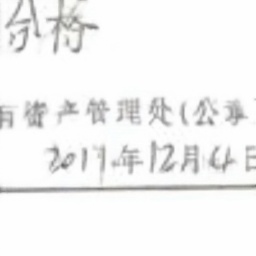 合格
有资产管理处(公章
2017年12月4日